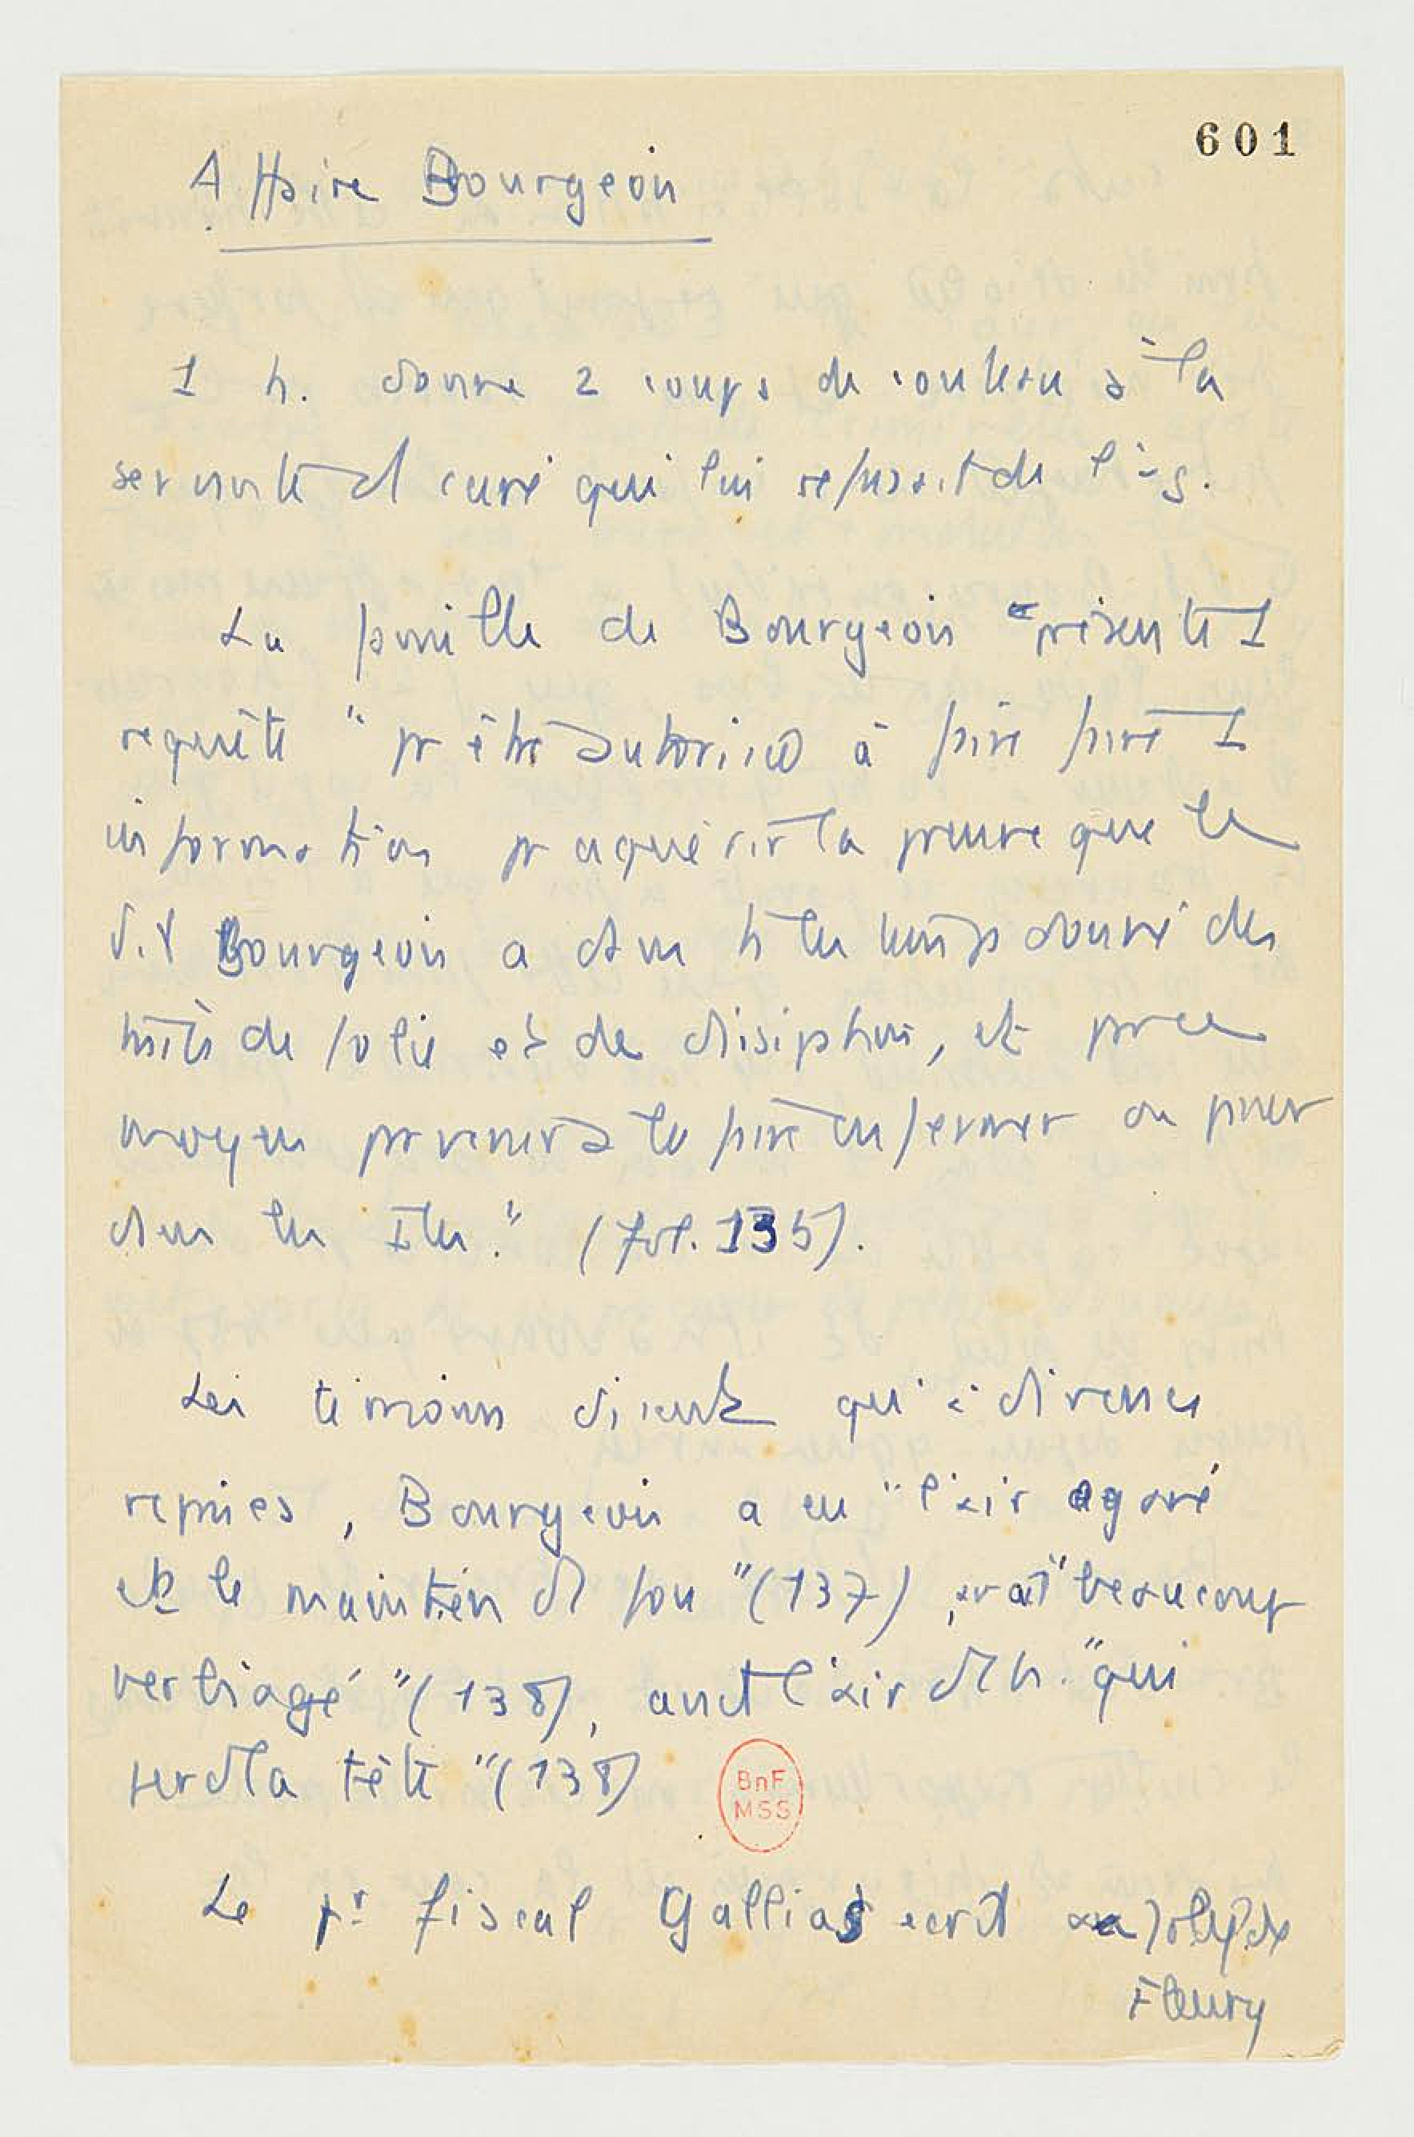 601
Affaire Bourgeois
1 h. donne 2 coups de couteau à la
servante d curé qui lui refusait de l'arg.
La famille de Bourgeois présente 1
requête "pr être autorisée à faire faire 1
information pr acquérir la preuve que le
dit Bourgeois a dans ts les temps donné des
traits de folie et de dissipation, et par ce
moyen parvenir à le faire enfermer ou passer
dans les Iles." (fol. 135).
Les témoins disent qu'à diverses
reprises, Bourgeois a eu "l'air égaré
et le maintien d fou" (137), avait "beaucoup
vertiagé" (138), avait l'air d'1 h. "qui
perd la tête" (138)
BnF
MSS
Le pr fiscal Gallias écrit au
Fleury